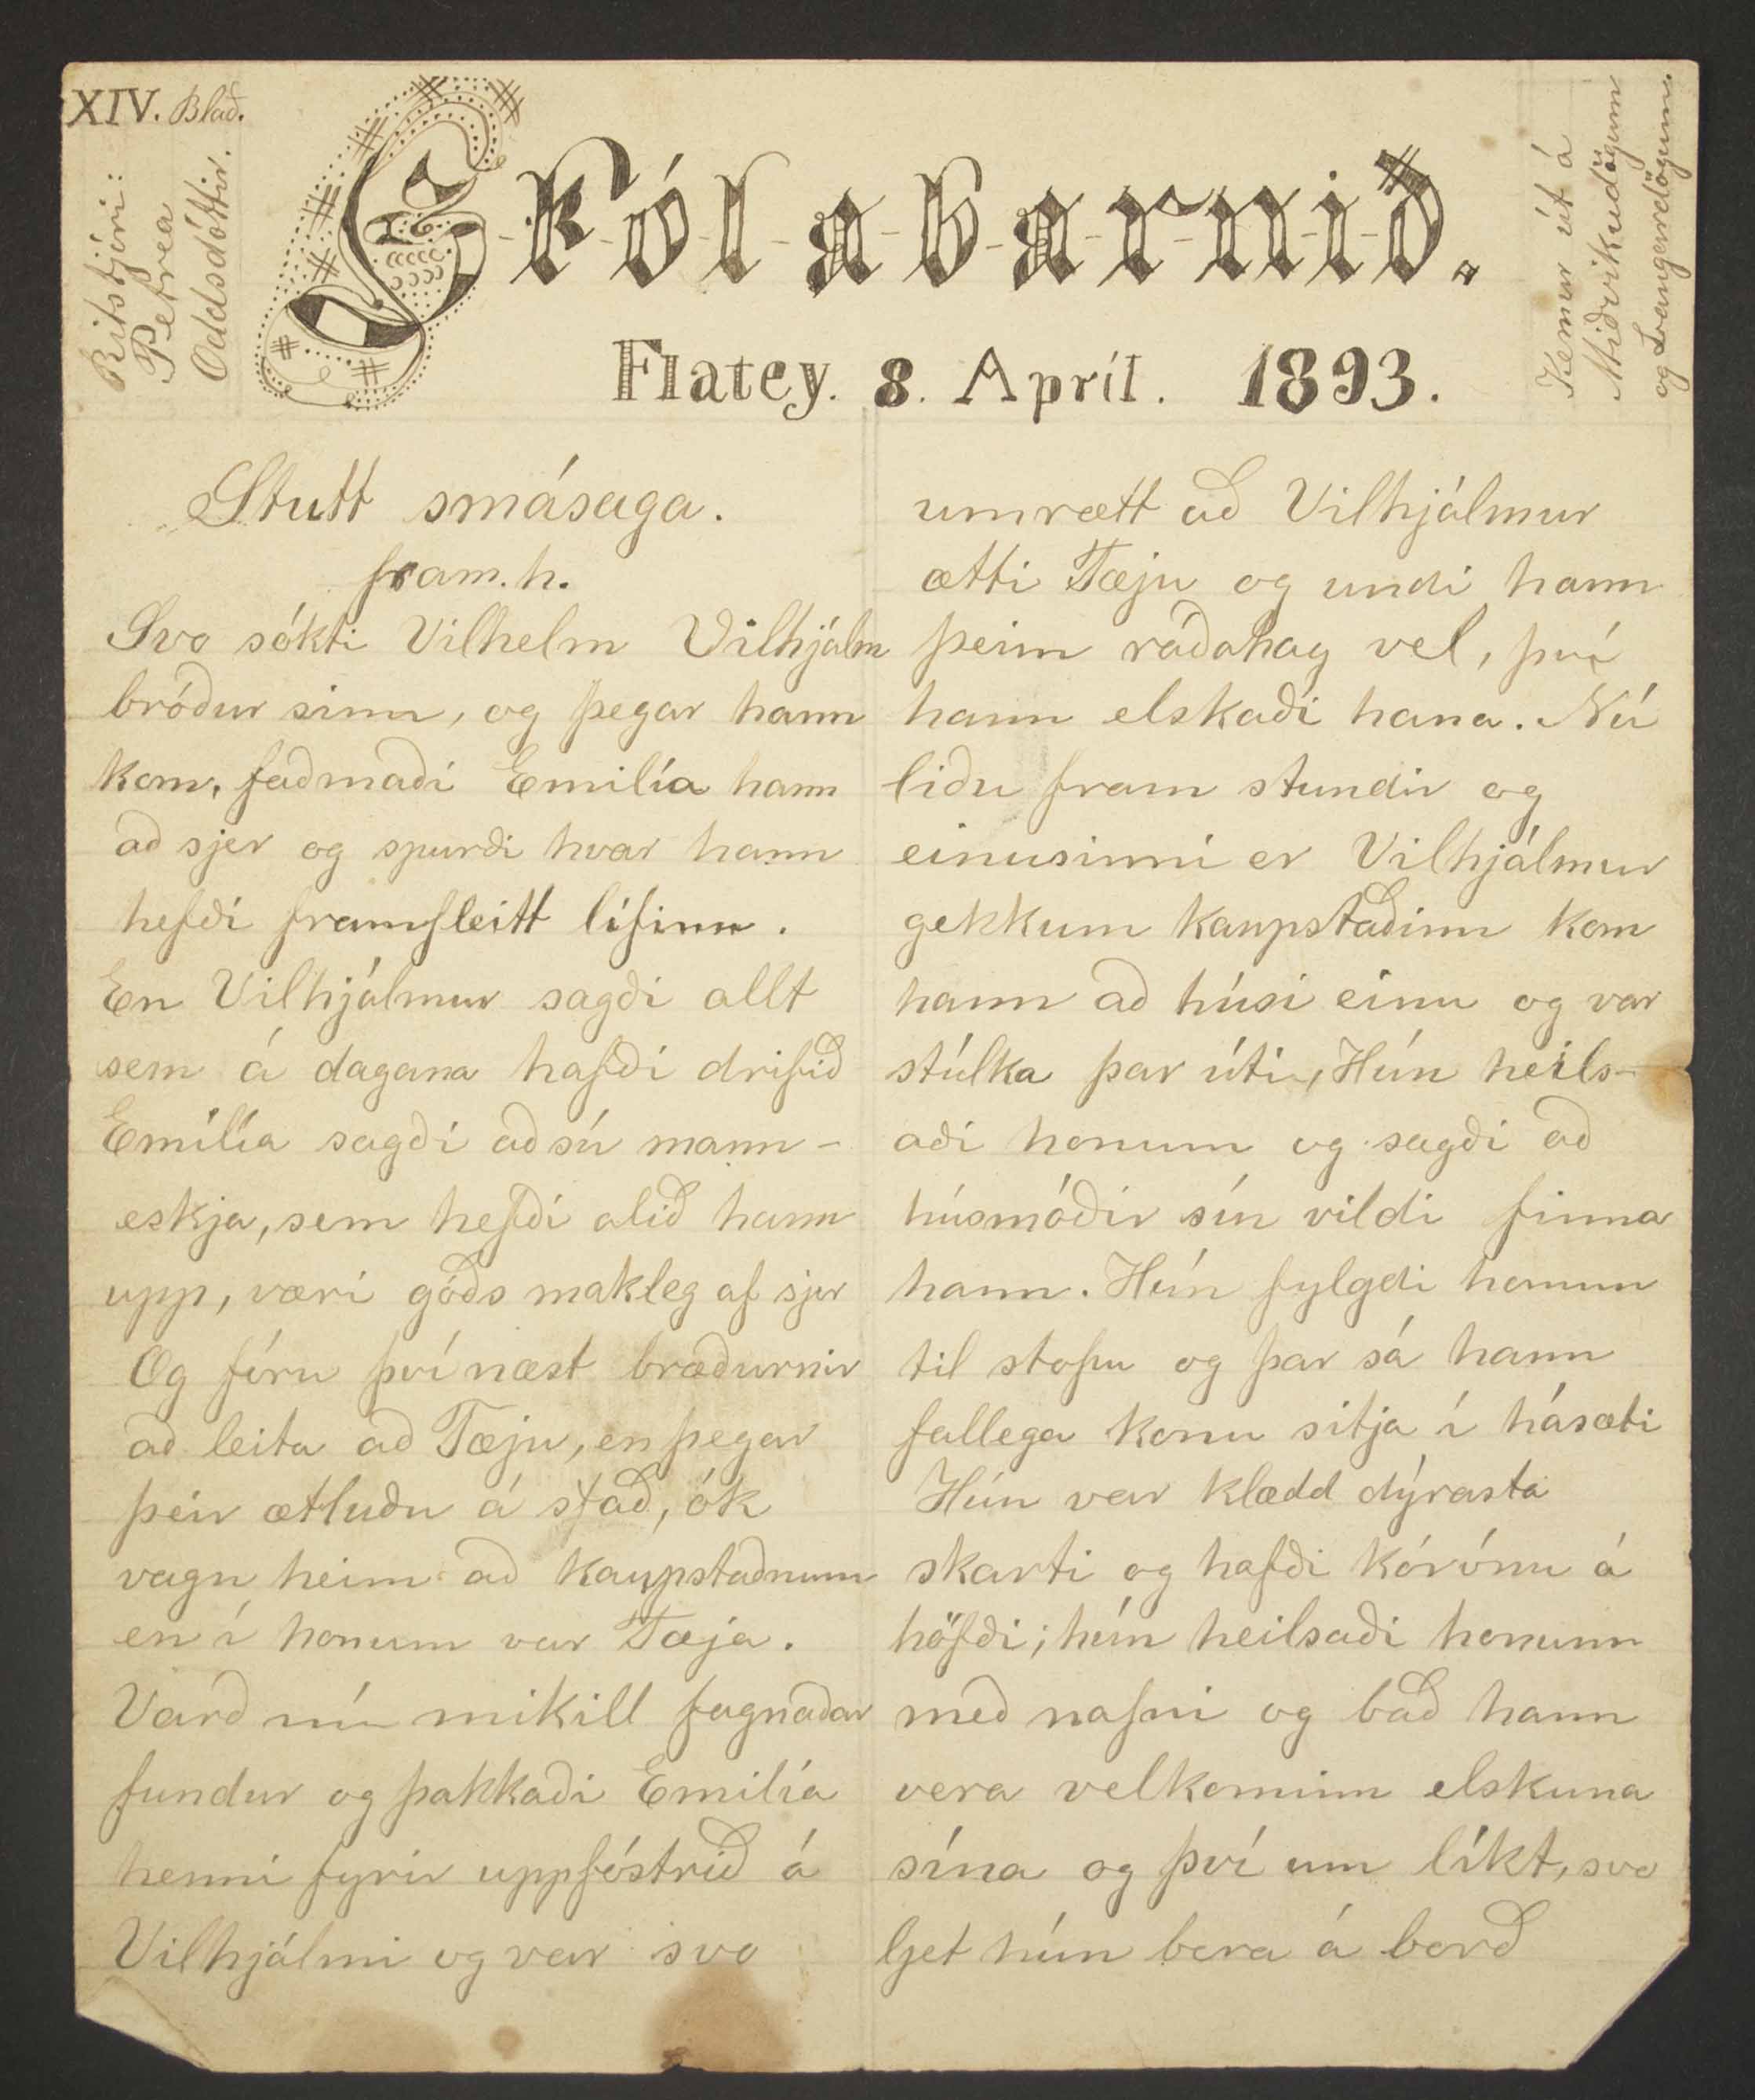 XIV. Blað.
Ritstjóri:
Petrea
Oddsdóttir.
Skólabarnið.
Kemur út á
Miðvikudögum
og Laugardögum.
Flatey. 8. Apríl. 1893.
Stutt smásaga.
fram.h.
Svo sókti Vilhelm Vilhjálm
bróður sinn, og þegar hann
kom, faðmaði Emilía hann
að sjer og spurði hvar hann
hefði framfleitt lífinu.
En Vilhjálmur sagði allt
sem á dagana hafði drifið
Emilía sagði að sú mann-
eskja, sem hefði alið hann
upp, væri góðs makleg af sjer
Og fóru því næst bræðurnir
að leita að Tæju, en þegar
þeir ætluðu á stað, ók
vagn heim að kaupstaðnum
en í honum var Tæja.
Varð nú mikill fagnaðar
fundur og þakkaði Emilía
henni fyrir uppfóstrið á
Vilhjálmi og var svo
umrætt að Vilhjálmur
ætti Tæju og undi hann
þeim ráðahag vel, því
hann elskaði hana. Nú
liðu fram stundir og
einusinni er Vilhjálmur
gekkum kaupstaðinn kom
hann að húsi einu og var
stúlka þar úti, Hún heils-
aði honum og sagði að
húsmóðir sín vildi finna
hann. Hún fylgdi honum
til stofu og þar sá hann
fallega konu sitja í hásæti
Hún var klædd dýrasta
skarti og hafði kórónu á
höfði; hún heilsaði honum
með nafni og bað hann
vera velkominn elskuna
sína og því um líkt, svo
ljet hún bera á borð